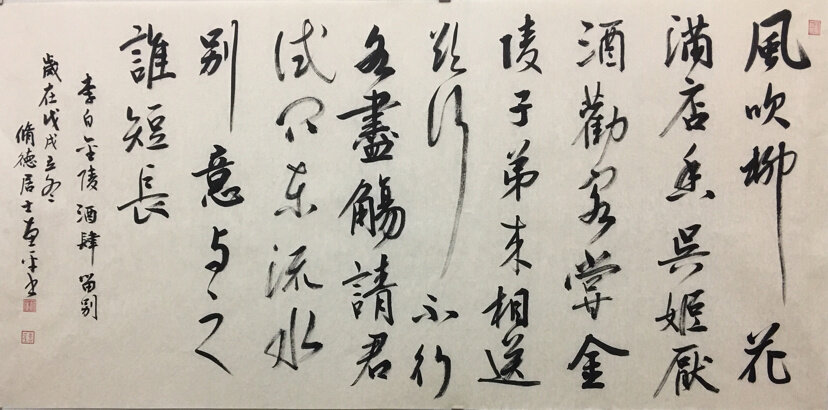 風吹柳花
滿店香吳姬厭
酒勸客嘗金
陵子弟来相送
欲行不行
各盡觴請君
試问东流水
别意与之
誰短長
李白金陵酒肆留别
歲在戊戌立冬
脩德居士平书